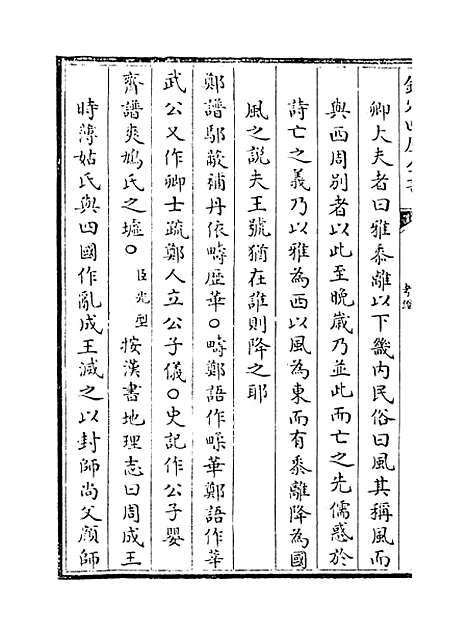 欽定四庫全書
考證
卿大夫者曰雅黍離以下畿内民俗曰風其稱風而
與西周別者以此至晚嵗乃並此而亡之先儒惑於
詩亡之義乃以雅為西以風為東而有黍離降為國
風之說夫王號猶在誰則降之耶
鄭譜鄔蔽補丹依疇歴華○疇鄭語作㽥華鄭語作莘
武公又作卿士疏鄭人立公子儀○史記作公子嬰
齊譜爽鳩氏之墟○臣光型按漢書地理志曰周成王
時薄姑氏與四國作亂成王滅之以封師尚父顔師